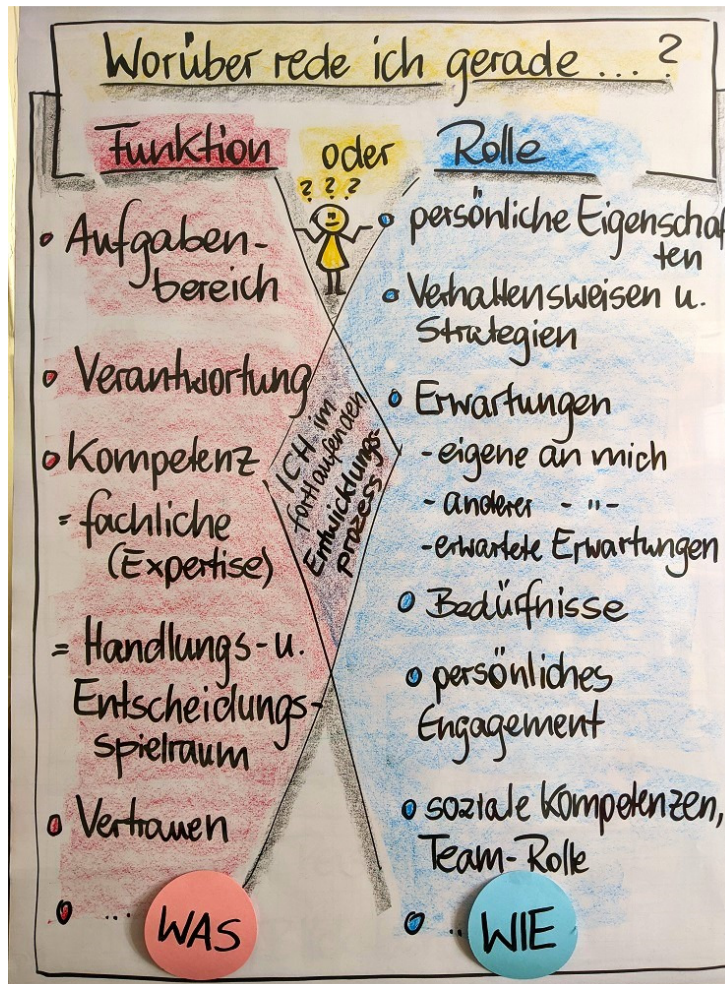 Worüber rede ich gerade ... ?
Funktion oder Rolle
? ? ?
• Aufgaben-
bereich
• Verantwortung
• Kompetenz
= fachliche
(Expertise)
= Handlungs- u.
Entscheidungs-
spielraum
• Vertrauen
• ...
WAS
ICH im
fortlaufenden
Entwicklungs-
prozess
• persönliche Eigenschaf
ten
• Verhaltensweisen u.
Strategien
• Erwartungen
- eigene an mich
- anderer - " -
- erwartete Erwartungen
• Bedürfnisse
• persönliches
Engagement
• soziale Kompetenzen,
Team-Rolle
• ..
WIE